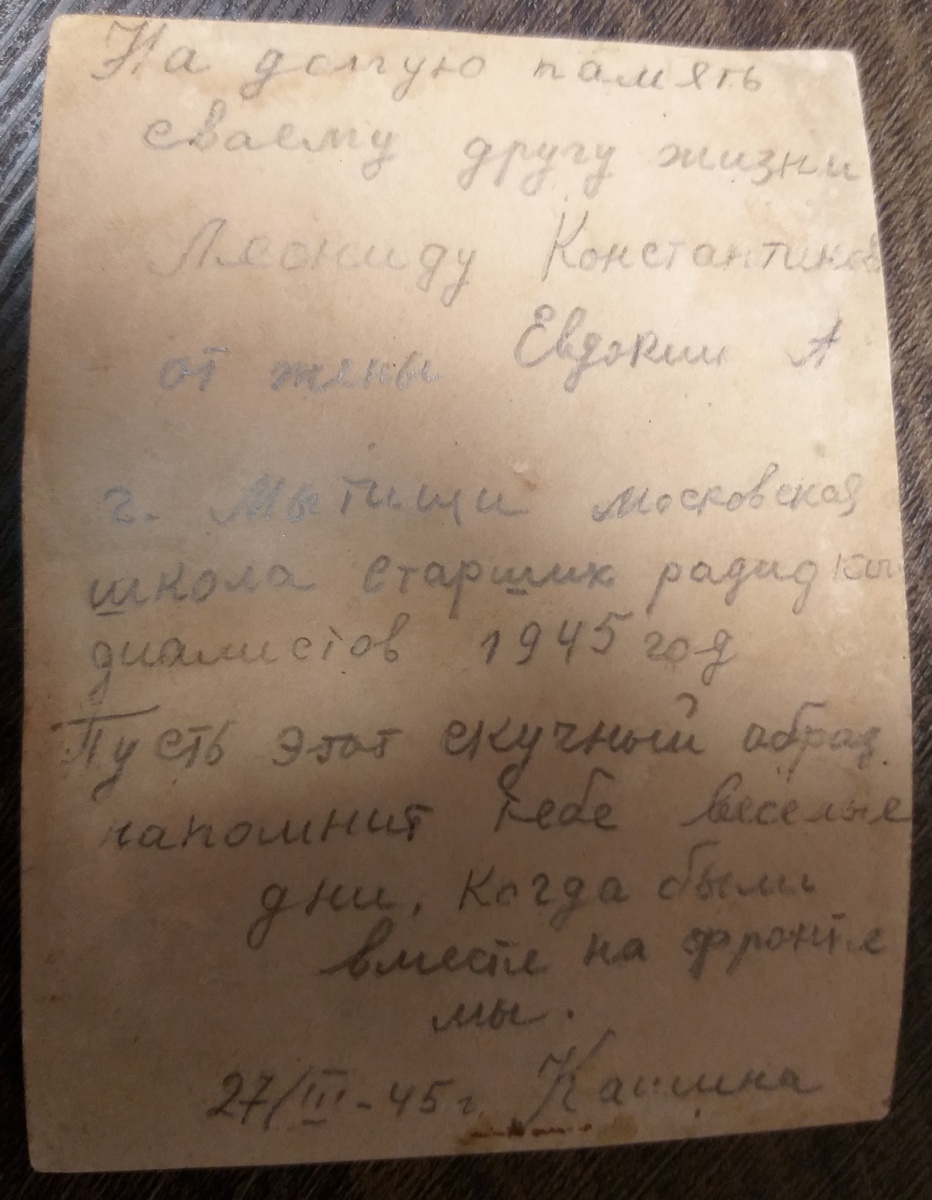 На долгую память
сваему другу жизни
Леониду Константинов
от жены Евдокии А
г. Мытищи московская
школа старших радио
диалистов 1945 год
Пусть этот скучный образ
напомнит тебе весёлые
дни, когда были
вместе на фронте
мы.
27/III-45 г.